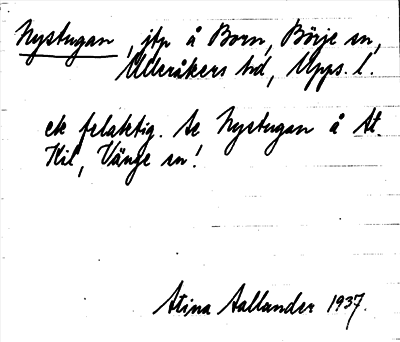 Nystugan, jtp å Born, Börje sn,
Ulleråkers hd, Upps. l.
ek felaktig. Se Nystugan å St.
Kil, Vänge sn!
Stina Sallander 1937.